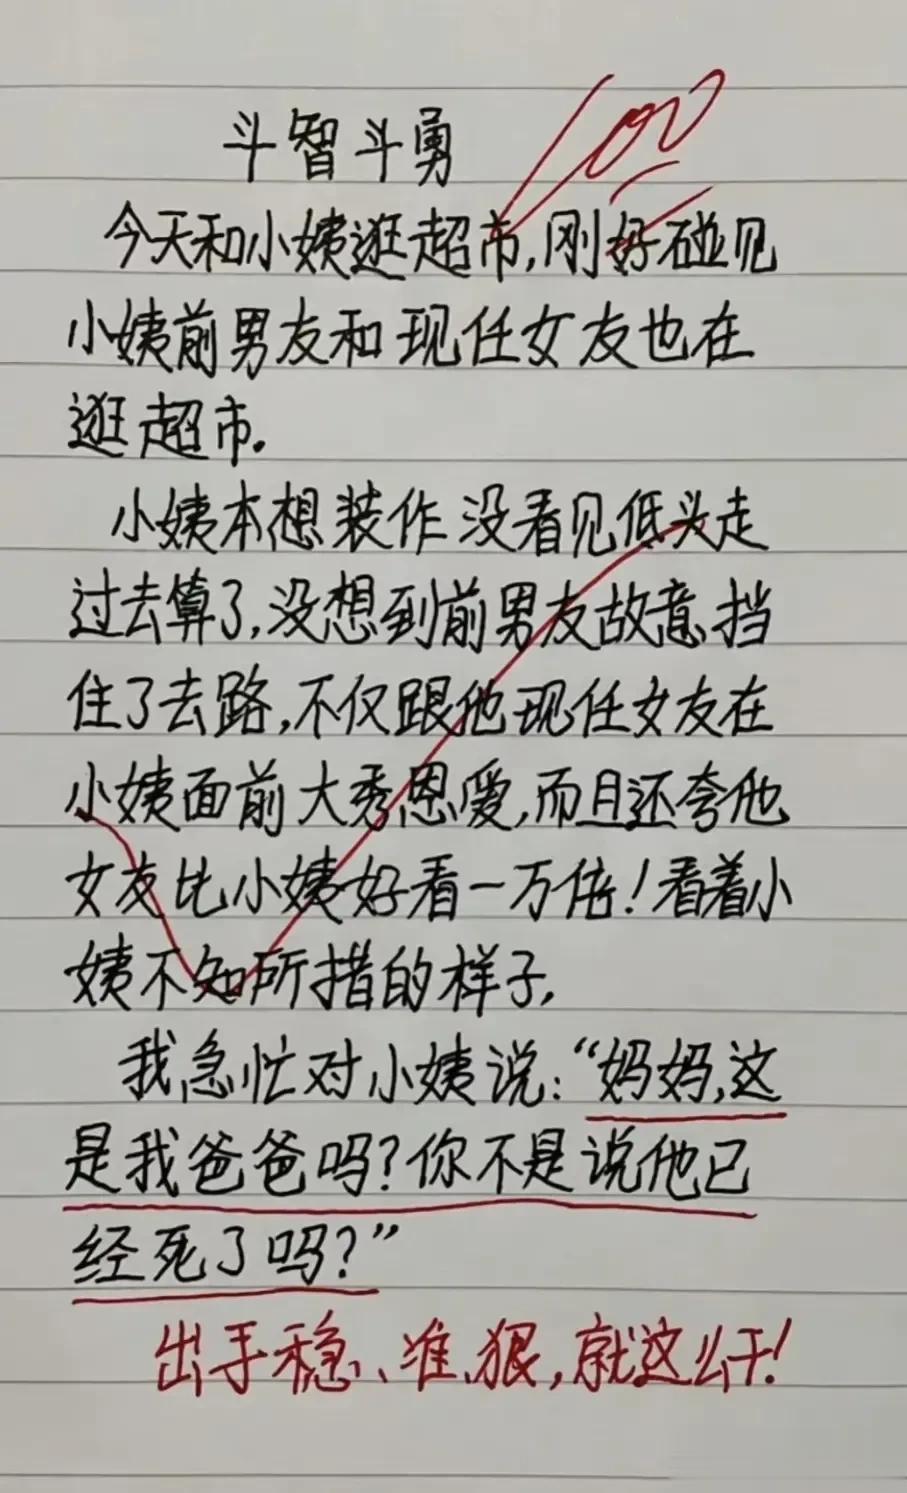 斗智斗勇
100
今天和小姨逛超市,刚好碰见
小姨前男友和现任女友也在
逛超市.
小姨本想装作没看见低头走
过去算了,没想到前男友故意挡
住了去路,不仅跟他现任女友在
小姨面前大秀恩爱,而且还夸他
女友比小姨好看一万倍!看着小
姨不知所措的样子,
我急忙对小姨说:“妈妈,这
是我爸爸吗?你不是说他已
经死了吗?”
出手稳、准、狠,就这么干!